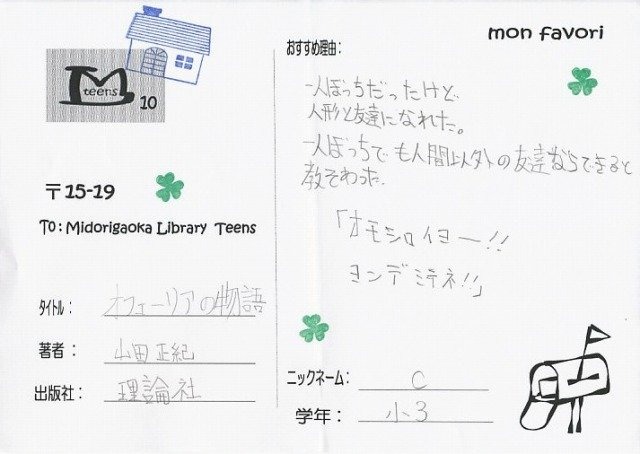 M
teens
10
〒15-19
To: Midorigaoka Library Teens
タイトル: オフェーリアの物語
著者: 山田正紀
出版社: 理論社
mon favori
おすすめ理由:
一人ぼっちだったけど、
人形と友達になれた。
一人ぼっちでも人間以外の友達ならできると
教そわった。
「オモシロイヨー!!
ヨンデミテネ!!」
ニックネーム: C
学年: 小3